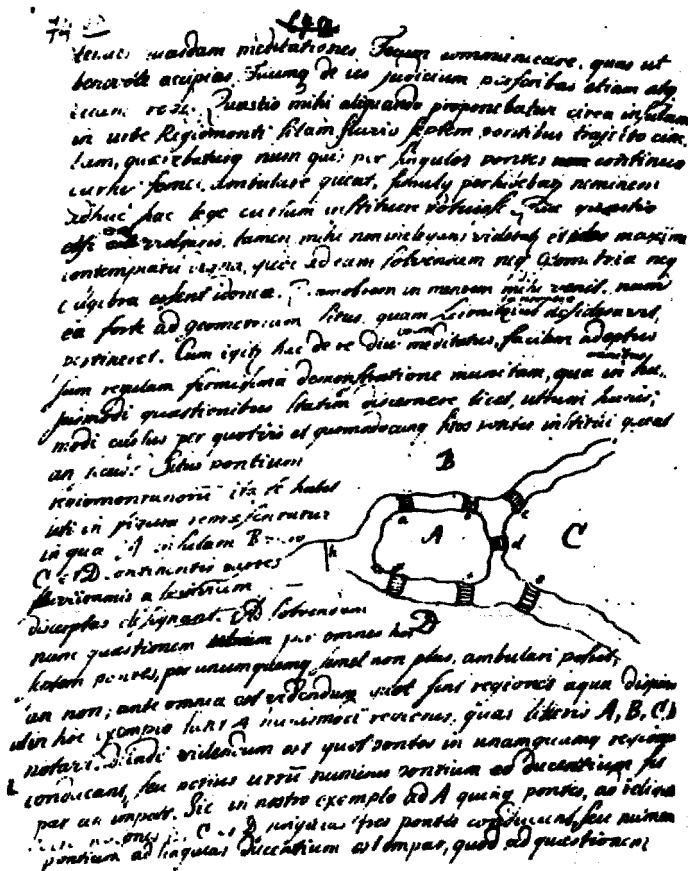 quasdam meditationes Tecum communicare, quas ut
accipias, Tuumq de iis judicium perscribas etiam atq
Quaestio mihi aliquando proponebatur circa insulam
in urbe Regiomonti sitam fluvio septem pontibus trajecto cinc
tam, quaerebaturq num quis per singulos pontes continuo
cursu ambulare queat, simulq perhibebatur neminem
adhuc hac lege cursum instituere potuisse. Haec quaestio
etsi vulgaris, tamen mihi non videbatur maxime
contemplatu digna, quod ad eam solvendam neq Geometria neq
Algebra essent idonea. Quamobrem in mentem mihi venit, num
ea forte ad geometriam situs quam Leibnitzius desideravit,
pertineret. Cum igitq hac de re diu meditatus, facilem adeptus
sum regulam firmissima demonstratione munitam, qua in hu
jusmodi quaestionibus statim discernere licet, utrum hujus
modi cursus per quotvis et quomodocunq sitos pontes institui queat
an secus. Situs pontium
regiomontanorū ita se habet
uti in figura repraesentatur
in qua A insulam B
C et D continentis partes
fluvii ramis a se invicem
discerptas designant. Ad solvendam
nunc quaestionem per omnes hos
pontes, per unumquemq semel non plus, ambulari possit,
an non; ante omnia est videndum quot sint regiones aqua
uti in hoc exemplo sunt A quas literis A, B, C, D
notavi. Deinde videndum est quot pontes in unamquamq regionem
conducant, seu potius utrū numerus pontium eo ducentium sit
par an impar. Sic in nostro exemplo ad A quinq pontes, ad reliquas
C et D singulas tres pontes conducunt, seu numerus
pontium ad singulas ducentium est impar, quod ad quaestionem
B
a
b
c
A
d
C
h
e
D